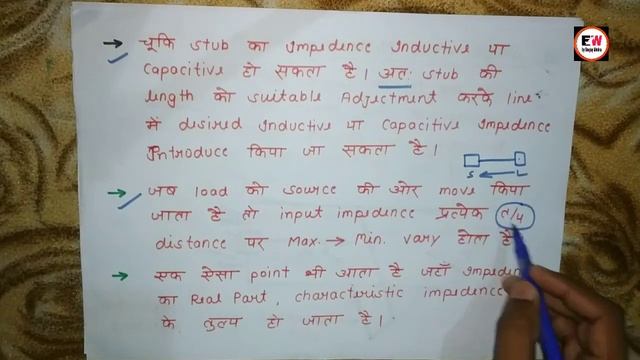 EW
→ चूकि stub का Impedence Inductive या
Capacitive हो सकता है। अतः stub की
length को suitable Adjectment करके line
में desired Inductive या Capacitive Impedence
Introduce किया जा सकता है।
S L
→ जब load को source की ओर move किया
जाता है तो input impedence प्रत्येक λ/4
distance पर Max. → Min. vary होता है
→ एक ऐसा point भी आता है जहाँ Impeden
का Real Part, characteristic impedence
के तुल्य हो जाता है।